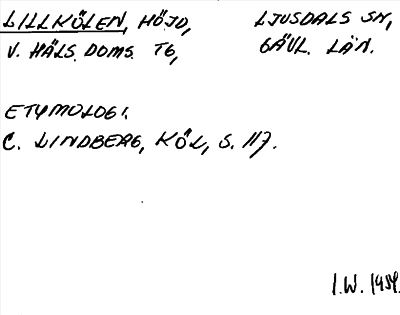 LILLKÖLEN, HÖJD, LJUSDALS SN,
V. HÄLS. DOMS. TG, GÄVL. LÄN.
ETYMOLOGI.
C. LINDBERG, KÖL, S. 117.
I.W. 1959.